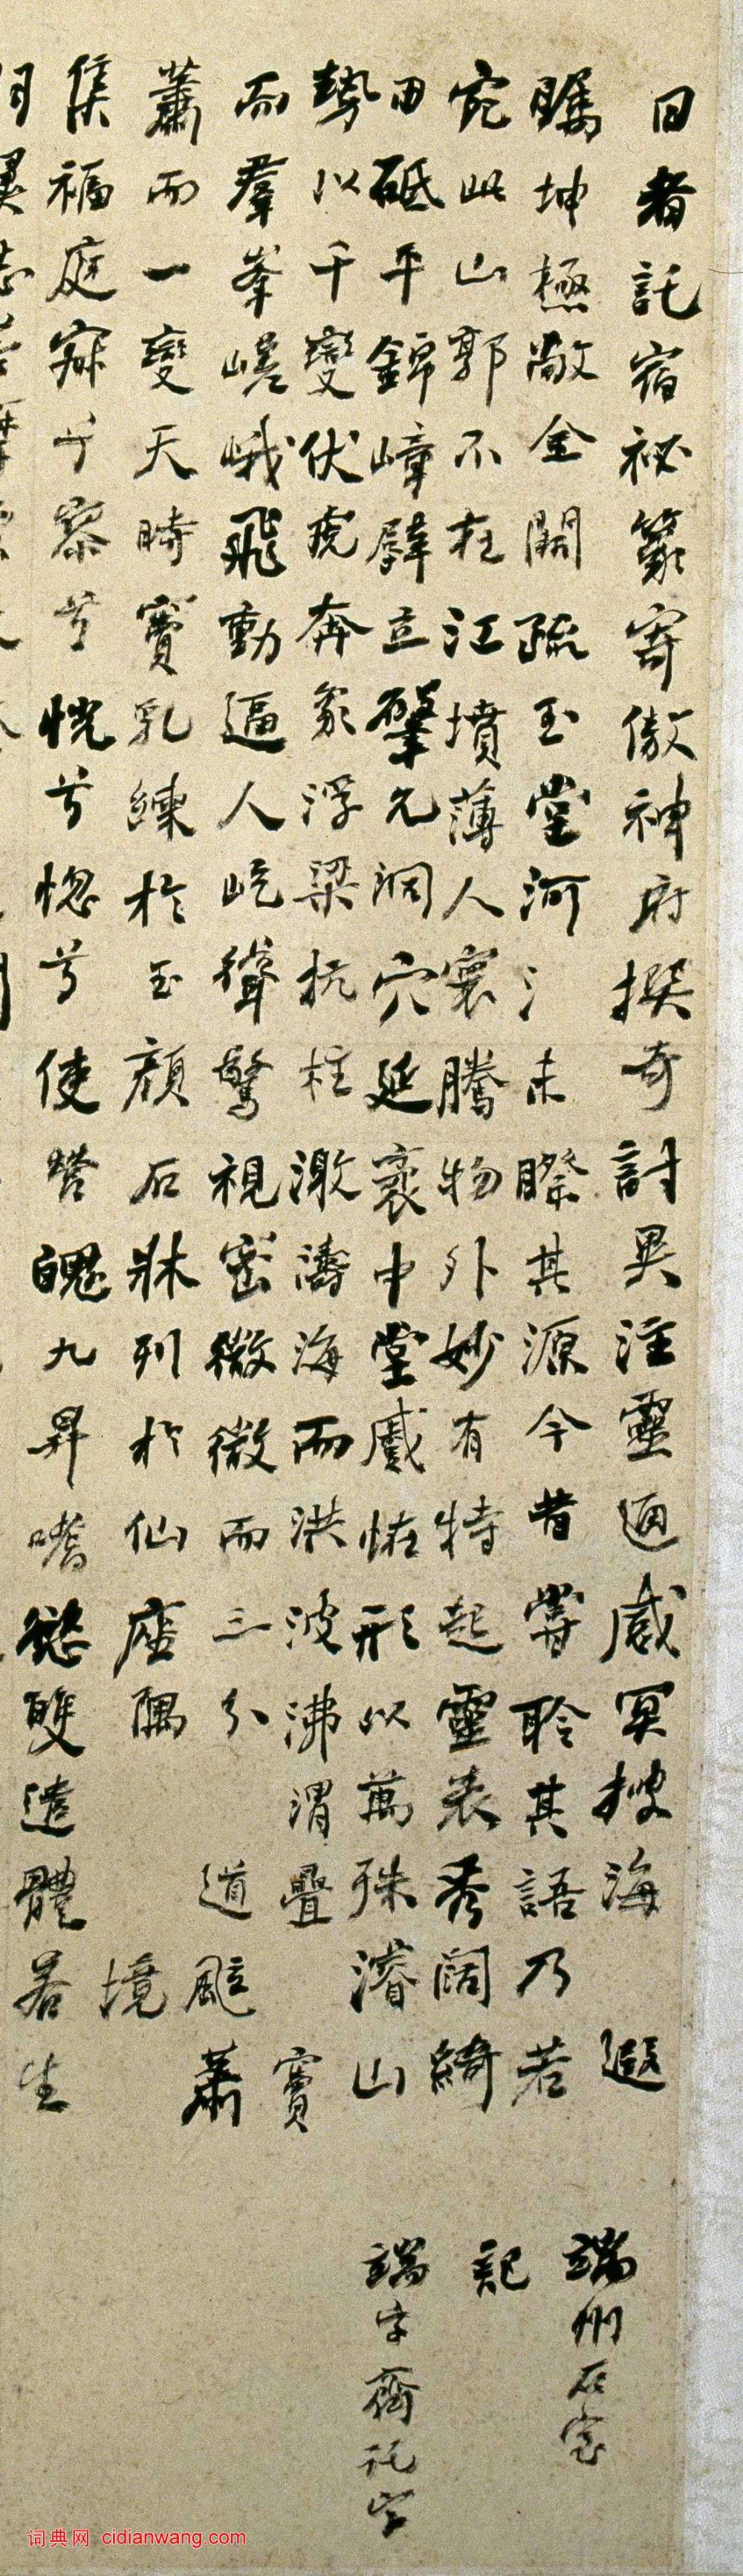 日者託宿祕籙寄傲神府撰奇討異注靈通感冥搜海遐
矚坤極敞金闕疏玉堂河未睽其源今昔嘗聆其語乃若
宛此山郭不在江墳薄人寰騰物外妙有特起靈表秀闊綺
田砥平錦嶂壁立肇允洞穴延袤中堂戲怪形以萬殊濬山
勢以千變伏虎奔象浮梁抗柱激濤海而洪波沸渭疊竇
而羣峯嵯峨飛動逼人屹聳驚視密微微而三分道颭蕭
蕭而一變天時竇乳練於玉顏石牀列於仙座隅境
集福庭寂兮寥兮恍兮惚兮使營魄九昇嗜慾雙遣體若生
端州石室
記
端字齋託字
词典网 cidianwang.com